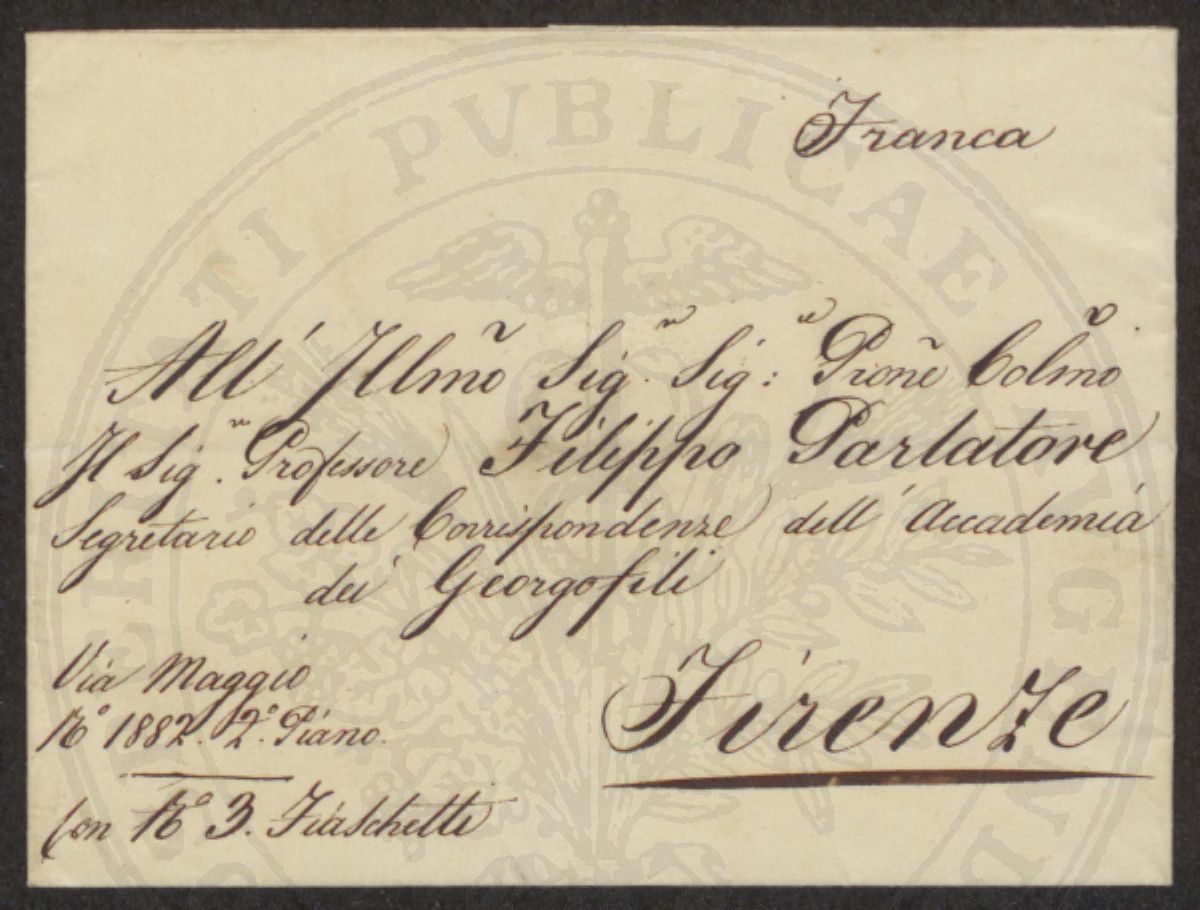 Franca
All' Illmõ Sig.r Sig: Prõne Colmõ
Il Sig.r Professore Filippo Parlatore
Segretario delle Corrispondenze dell' Accademia
dei Georgofili
Via Maggio
No 1882. 2o. Piano.
Firenze
Con No 3. Fiaschetti